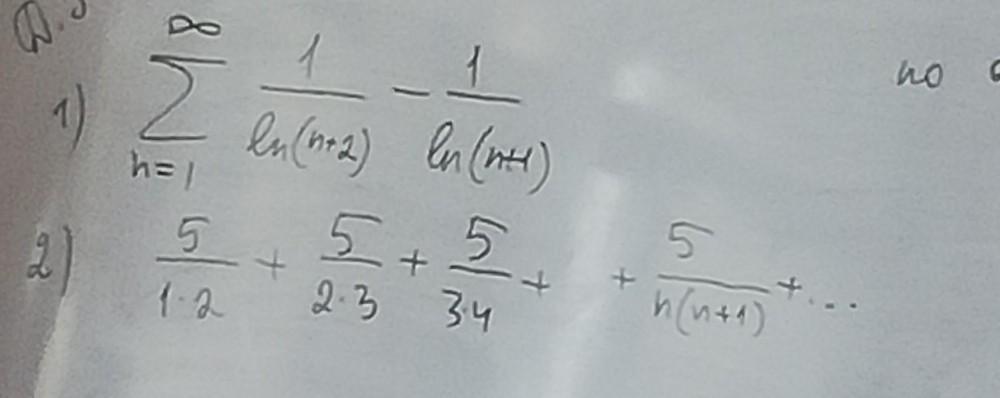 1) \sum_{n=1}^{\infty} \frac{1}{\ln(n+2)} - \frac{1}{\ln(n+1)}
по
2) \frac{5}{1 \cdot 2} + \frac{5}{2 \cdot 3} + \frac{5}{3 \cdot 4} + + \frac{5}{n(n+1)} + ...